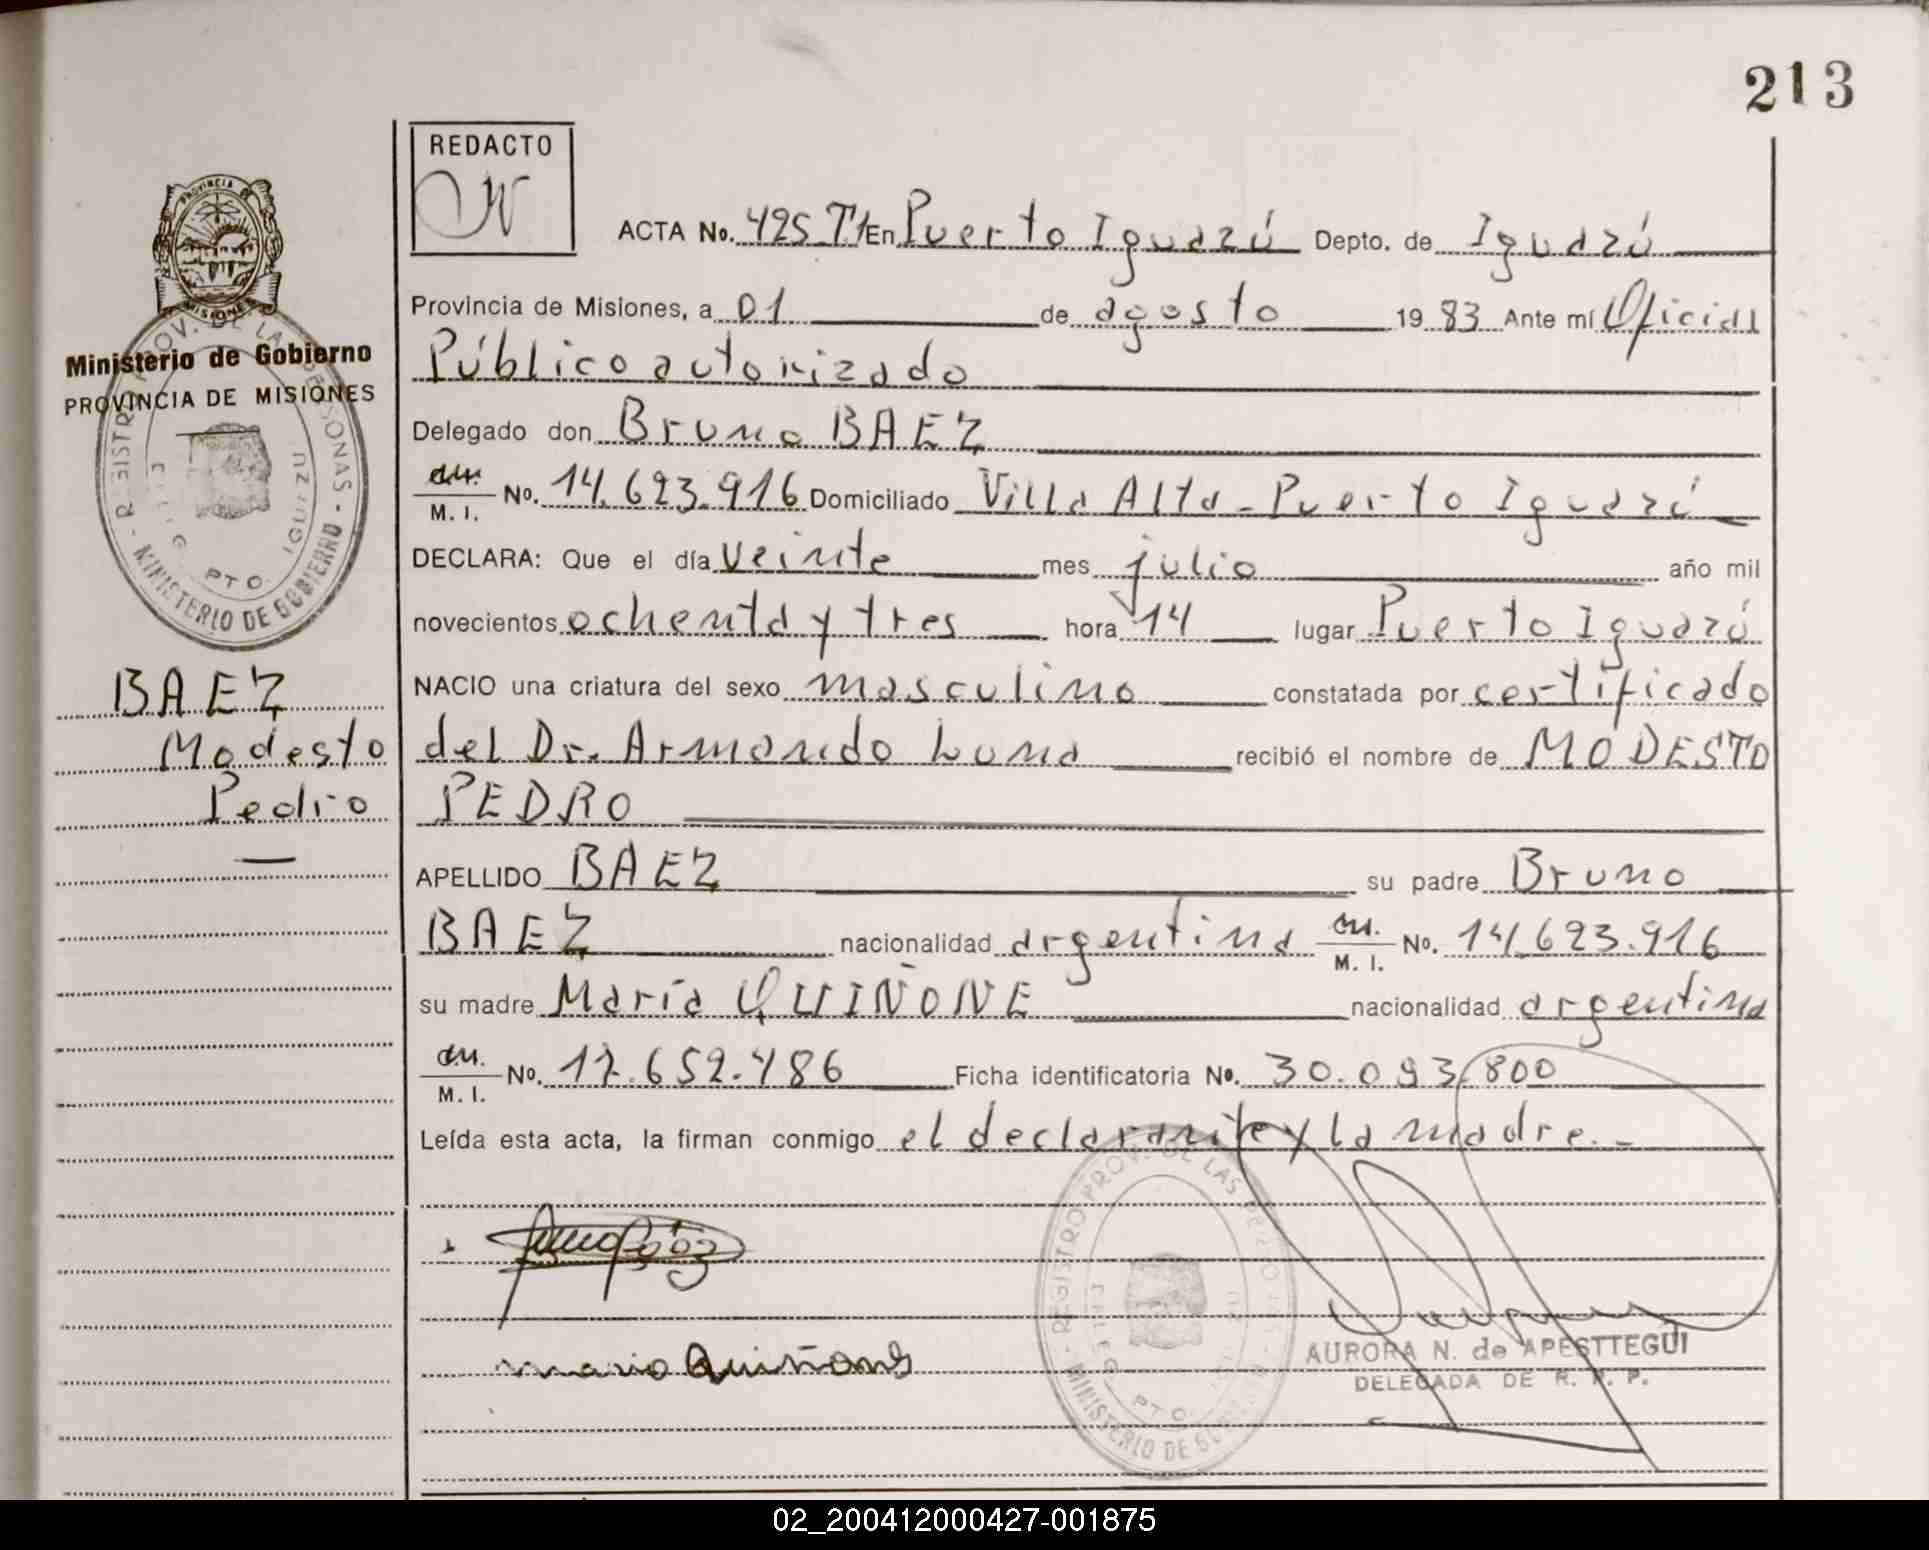 213
REDACTO
ACTA No. 425 T1 En Puerto Iguazú Depto. de Iguazú
Provincia de Misiones, a 01 de agosto 1983 Ante mí Oficial
Público autorizado
Delegado don Bruno BAEZ
D.U. M. I. No. 14.623.916 Domiciliado Villa Alta - Puerto Iguazú
DECLARA: Que el día veinte mes julio año mil
novecientos ochenta y tres hora 14 lugar Puerto Iguazú
NACIO una criatura del sexo masculino constatada por certificado
del Dr. Armando Luna recibió el nombre de MODESTO
PEDRO
APELLIDO BAEZ su padre Bruno
BAEZ nacionalidad argentina D.U. M. I. No. 14.623.916
su madre María QUIÑONE nacionalidad argentina
D.U. M. I. No. 17.652.486 Ficha identificatoria No. 30.093.800
Leída esta acta, la firman conmigo el declarante y la madre.-
maria Quiñones
AURORA N. de APESTTEGUI
DELEGADA DE R. P. P.
REGISTRO PROV. DE LAS PERSONAS - MINISTERIO DE GOBIERNO -
DELEG. PTO. IGUAZU
PROVINCIA DE MISIONES
Ministerio de Gobierno
PROVINCIA DE MISIONES
REGISTRO PROV. DE LAS PERSONAS - MINISTERIO DE GOBIERNO -
DELEG. PTO. IGUAZU
BAEZ
Modesto
Pedro
02_200412000427-001875